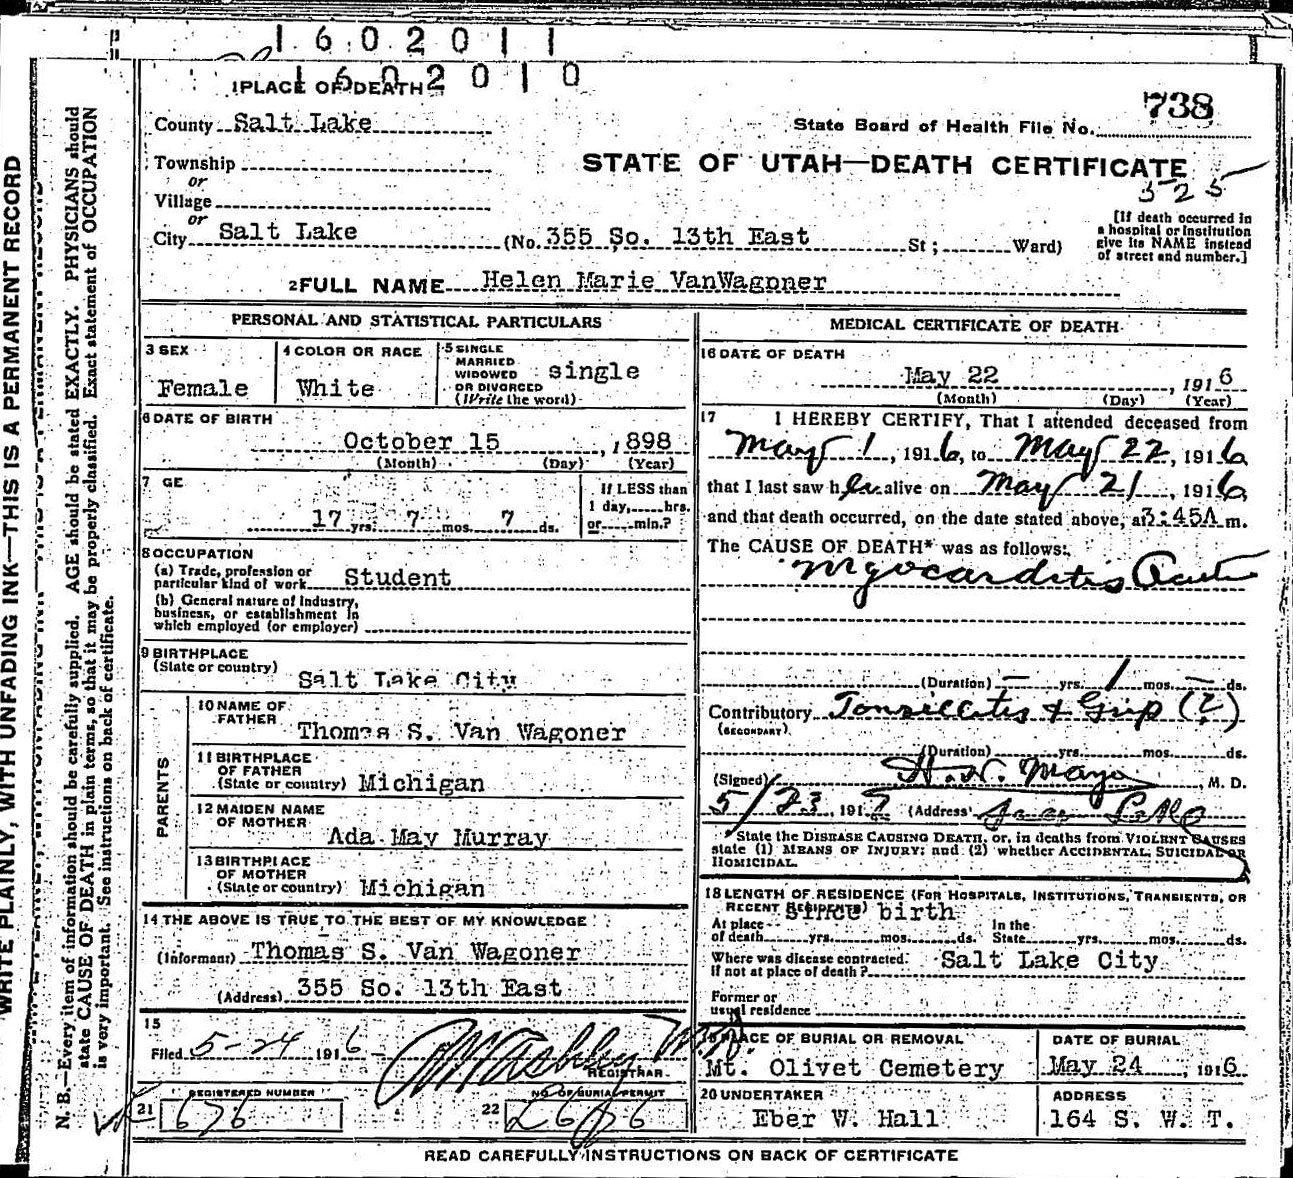 1602011
1602010
1 PLACE OF DEATH
738
County Salt Lake
State Board of Health File No.
Township
STATE OF UTAH—DEATH CERTIFICATE
or
525
Village
or
[If death occurred in
a hospital or institution
give its NAME instead
of street and number.]
City Salt Lake (No. 355 So. 13th East St; Ward)
2 FULL NAME Helen Marie VanWagoner
PERSONAL AND STATISTICAL PARTICULARS
3 SEX
Female
4 COLOR OR RACE
White
5 SINGLE
MARRIED
WIDOWED
OR DIVORCED
(Write the word)
single
6 DATE OF BIRTH
October 15, 1898
(Month) (Day) (Year)
7 GE
17 yrs. 7 mos. 7 ds.
If LESS than
1 day, hrs.
or min.?
8 OCCUPATION
(a) Trade, profession or
particular kind of work Student
(b) General nature of industry,
business, or establishment in
which employed (or employer)
9 BIRTHPLACE
(State or country)
Salt Lake City
PARENTS
10 NAME OF
FATHER
Thomas S. Van Wagoner
11 BIRTHPLACE
OF FATHER
(State or country) Michigan
12 MAIDEN NAME
OF MOTHER
Ada May Murray
13 BIRTHPLACE
OF MOTHER
(State or country) Michigan
14 THE ABOVE IS TRUE TO THE BEST OF MY KNOWLEDGE
(Informant) Thomas S. Van Wagoner
(Address) 355 So. 13th East
15
Filed 5-24 1916
REGISTRAR
REGISTERED NUMBER
21 676
NO. OF BURIAL PERMIT
22
MEDICAL CERTIFICATE OF DEATH
16 DATE OF DEATH
May 22, 1916
(Month) (Day) (Year)
17 I HEREBY CERTIFY, That I attended deceased from
May 1, 1916, to May 22, 1916
that I last saw her alive on May 21, 1916
and that death occurred, on the date stated above, at 3:45A m.
The CAUSE OF DEATH* was as follows:
Myocarditis Acute
(Duration) — yrs. 1 mos. — ds.
Contributory Tonsillitis & Grip (?)
(SECONDARY)
(Duration) yrs. mos. ds.
(Signed) , M. D.
5/23, 191 (Address)
State the DISEASE CAUSING DEATH, or, in deaths from VIOLENT CAUSES
state (1) MEANS OF INJURY; and (2) whether ACCIDENTAL, SUICIDAL OR
HOMICIDAL.
18 LENGTH OF RESIDENCE (FOR HOSPITALS, INSTITUTIONS, TRANSIENTS, OR
RECENT RESIDENTS) since birth
At place
of death yrs. mos. ds.
In the
State yrs. mos. ds.
Where was disease contracted
if not at place of death? Salt Lake City
Former or
usual residence
19 PLACE OF BURIAL OR REMOVAL
Mt. Olivet Cemetery
DATE OF BURIAL
May 24, 1916
20 UNDERTAKER
Eber W. Hall
ADDRESS
164 S. W. T.
READ CAREFULLY INSTRUCTIONS ON BACK OF CERTIFICATE
WRITE PLAINLY, WITH UNFADING INK—THIS IS A PERMANENT RECORD
N. B.—Every item of information should be carefully supplied. AGE should be stated EXACTLY. PHYSICIANS should
state CAUSE OF DEATH in plain terms, so that it may be properly classified. Exact statement of OCCUPATION
is very important. See instructions on back of certificate.